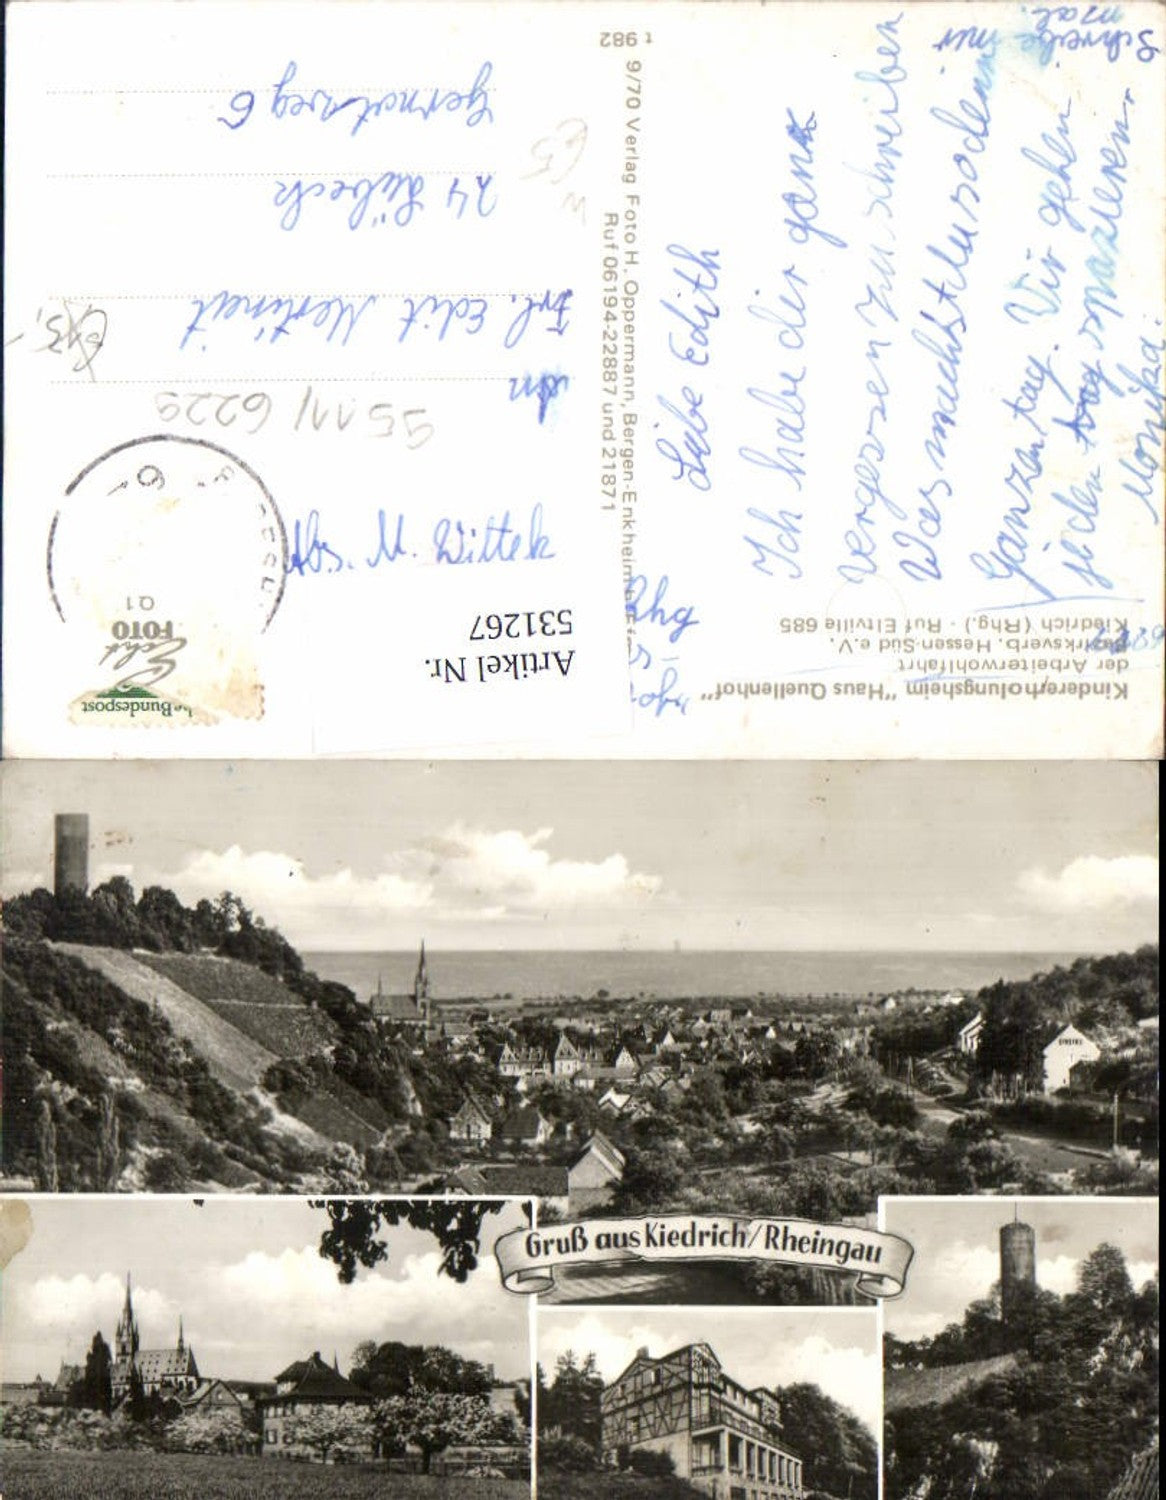 Kindererholungsheim "Haus Quellenhof"
der Arbeiterwohlfahrt
Bezirksverb. Hessen-Süd e.V.
Kiedrich (Rhg.) · Ruf Eltville 685
Liebe Edith
Ich habe dir ganz
vergessen zu schreiben
Was machst du so den
Ganzen tag. Wir gehen
jeden tag spazieren.
Monika.
Schreibe mir
mal.
t 982 9/70 Verlag Foto H. Oppermann, Bergen-Enkheim
Ruf 06194-22887 und 21871
Deutsche Bundespost
Echt
FOTO
Q1
Artikel Nr.
531267
Abs. M. Wittek
5511/6229
An
Frl. Edit Mertinat
24 Lübeck
Gernotweg 6
Gruß aus Kiedrich/Rheingau